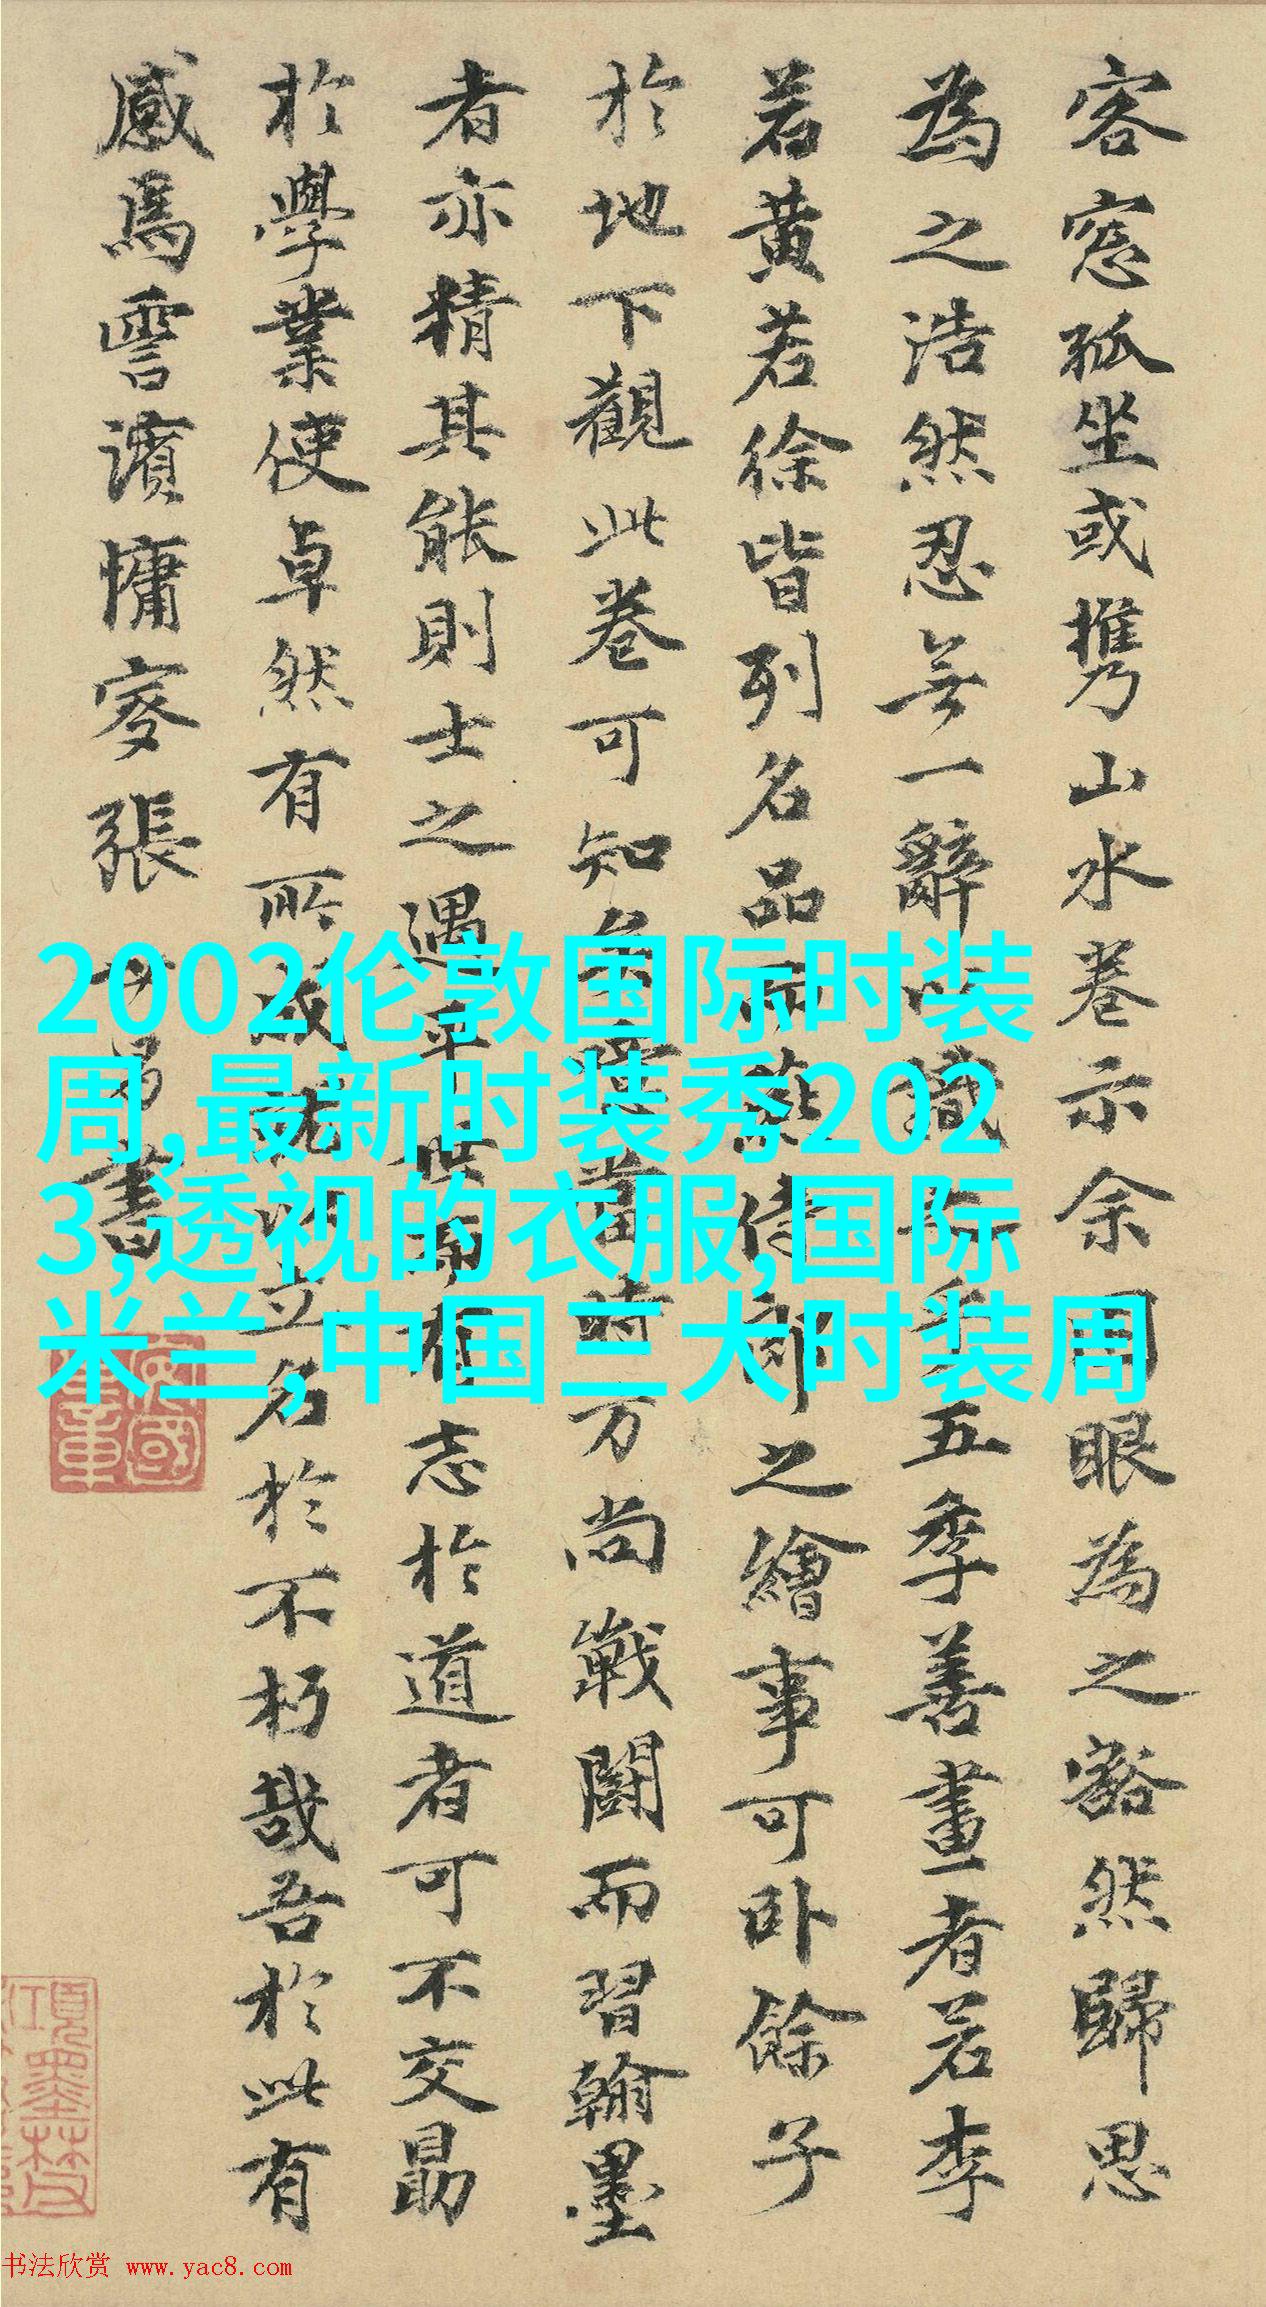 客窓孤坐或携山水卷示余因眼为之豁然歸思
為之浩然忍無一辭以識
五季善畫者若李
若黄若徐皆列名品而燕侍郎之繪事可卧餘子
於地下觀此卷可知矣當時方尚戰鬭而習翰墨
者亦精其能則士之遇平世而有志於道者可不交勗
於學業使卓然有所成就以立名於不朽哉吾於此有
感焉雲濱慵叟張
書
2002伦敦国际时装
周,最新时装秀202
3,透视的衣服,国际
米兰,中国三大时装周
项墨林父
书法欣赏 www.yac8.com